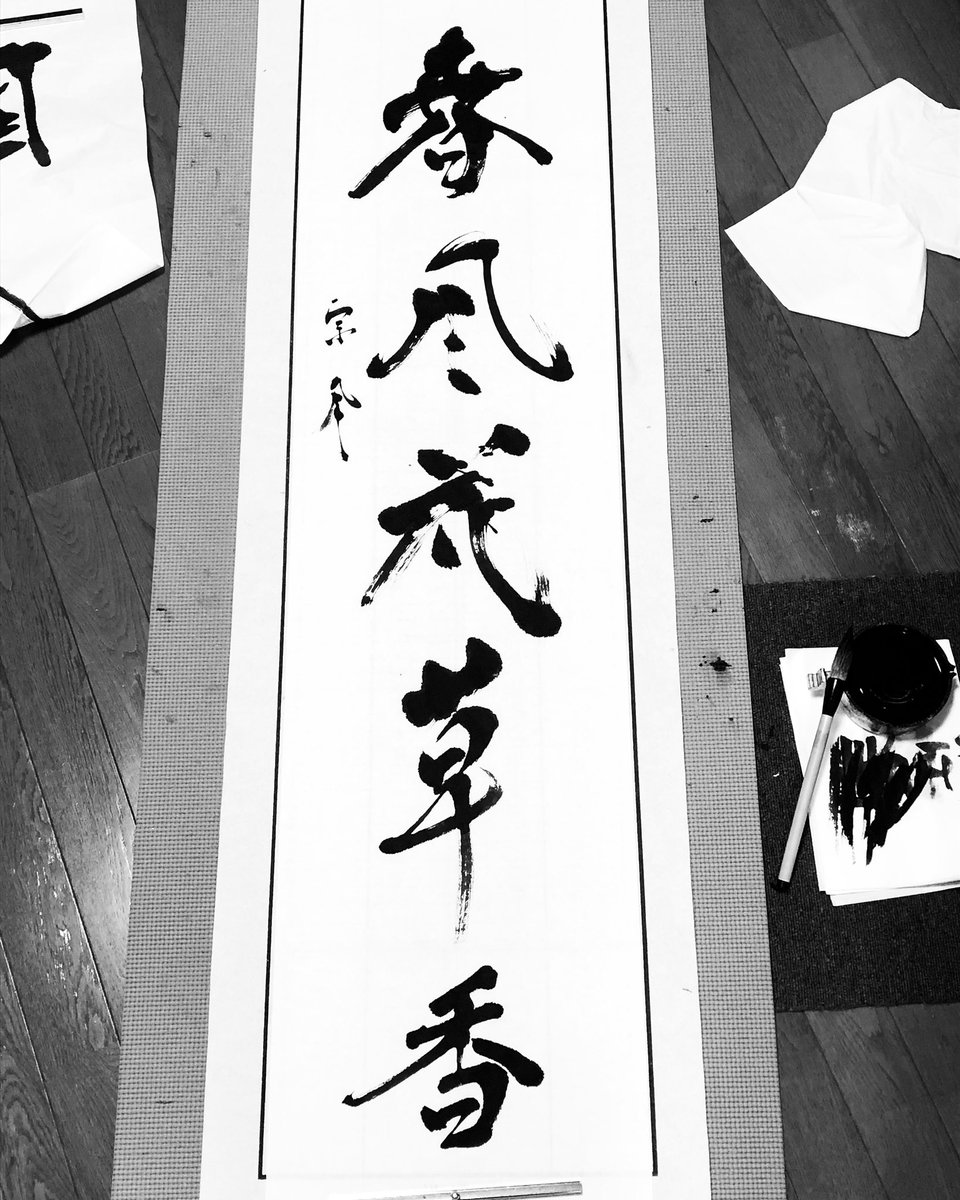 春風花草香
宗